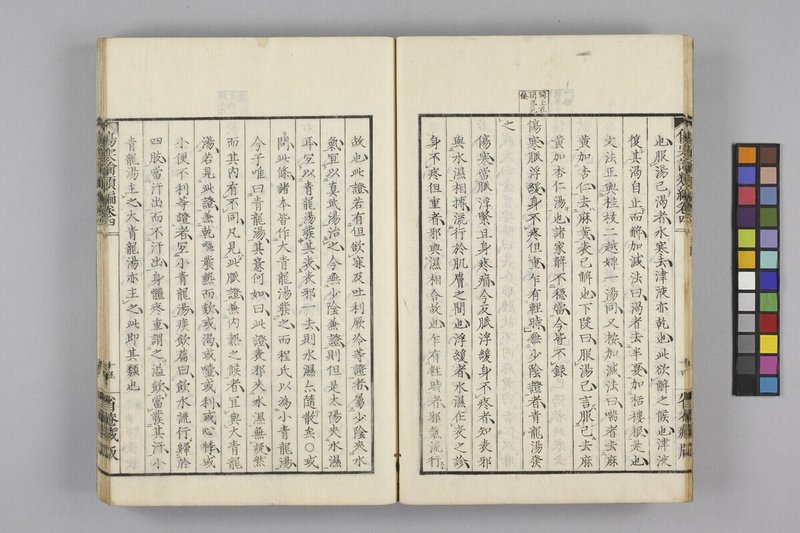 也服湯已渴者水寒去津液亦乾也此欲解之候也津液
復其渴自止而解加減法曰渴者去半夏加栝樓根是也
文法正與桂枝二越婢一湯同又按加減法曰喘者去麻
黃加杏仁去麻黃表已解也下陞曰服湯已言服已去麻
黃加杏仁湯也諸家解不穩當今皆不錄
傷寒脈浮緩身不疼但重乍有輕時無少陰證者青龍湯發
之
傷寒當脈浮緊且身疼痛今反脈浮緩身不疼者表邪
與水濕相搏流行於肌膚之間也浮緩者水濕在表之診
身不疼但重者邪與濕相合故也乍有輕時者邪氣流行
故也此證若有但欲寐及吐利厥冷等證者屬少陰夾水
氣宜以真武湯治之今無少陰兼證則但是太陽夾水濕
耳宜以青龍湯發其表表邪一去則水濕亦隨散矣○或
問此條諸本皆作大青龍湯發之而程氏以為小青龍湯
今子唯曰青龍湯其意何如曰此證表邪夾水濕無疑然
而其內有不同凡見此脈證兼內熱之候者宜與大青龍
湯若見此證兼乾嘔發熱而欬或渴或噎或利或心悸或
小便不利等證者宜小青龍湯痰飲篇曰飲水流行歸於
四肢當汗出而不汗出身體疼重謂之溢飲當發其汗小
青龍湯主之大青龍湯亦主之此即其類也
傷寒論類編卷四